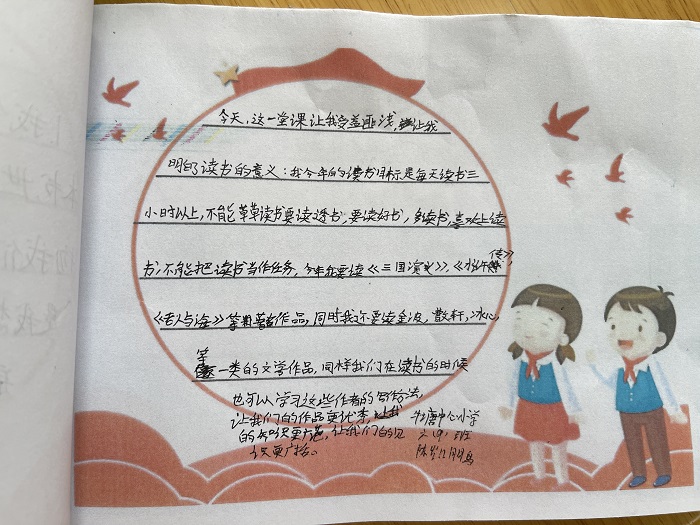 今天,这一堂课让我受益匪浅,让我
明白了读书的意义:我今年的读书目标是每天读书三
小时以上,不能草草读书要读透书,要读好书,多读书,喜欢上读
书,不能把读书当作任务,今年我要读《三国演义》,《水浒传》,
《老人与海》等著作品,同时我还要读金波,散轩,冰心,
等一类的文学作品,同样我们在读书的时候
也可以学习这些作者的写作法,
让我们的作品更优秀,让我
的知识更广范,让我们的见
识更广括。
牡唐中心小学
六(4)班
陈